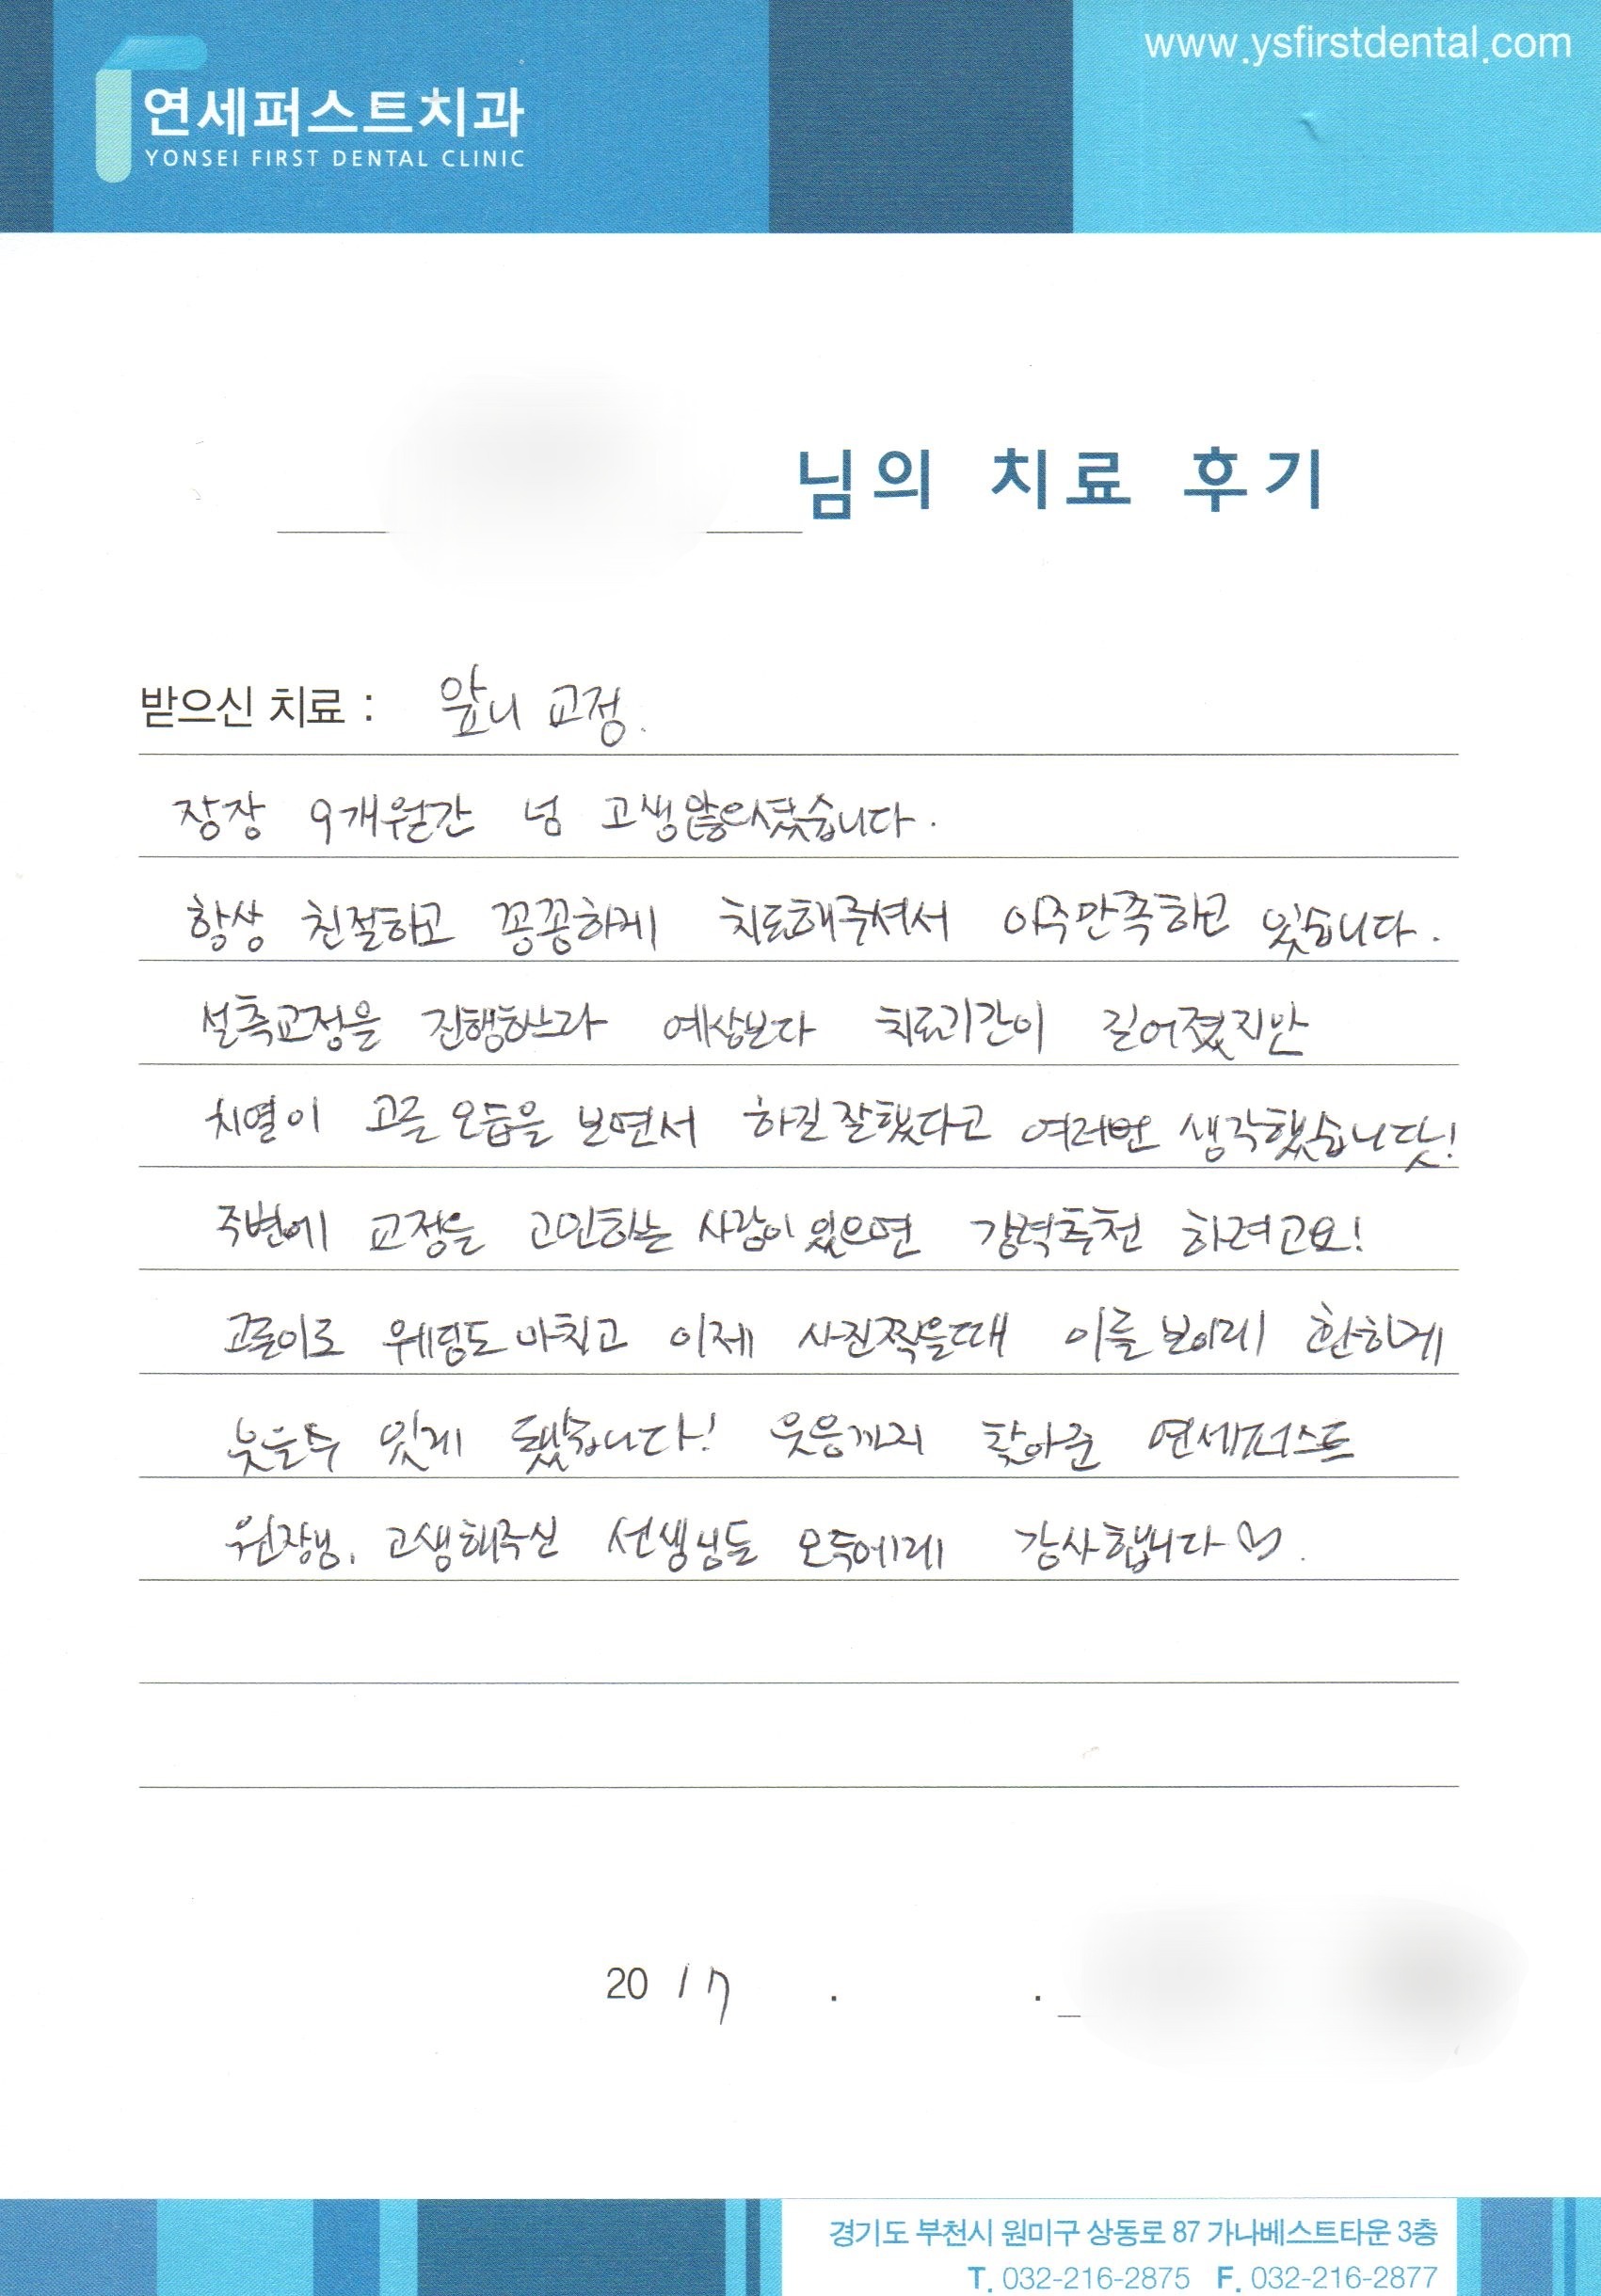 www.ysfirstdental.com
연세퍼스트치과
YONSEI FIRST DENTAL CLINIC
님의 치료 후기
받으신 치료 : 앞니 교정.
장장 9개월간 넘 고생많으셨습니다.
항상 친절하고 꽁꽁하게 치료해주셔서 아주만족하고 있습니다.
설측교정을 진행하느라 예상보다 치료기간이 길어졌지만
치열이 고른 모습을 보면서 하길 잘했다고 여러번 생각했습니닷!
주변에 교정을 고민하는 사람이 있으면 강력추천 하려고요!
고른이로 웨딩도 마치고 이제 사진찍을때 이를 보이며 환하게
웃을수 있게 됐습니다! 웃음까지 찾아준 연세퍼스트
원장님, 고생해주신 선생님들 모두에게 감사합니다♡.
20 17 . .
경기도 부천시 원미구 상동로 87 가나베스트타운 3층
T. 032-216-2875 F. 032-216-2877